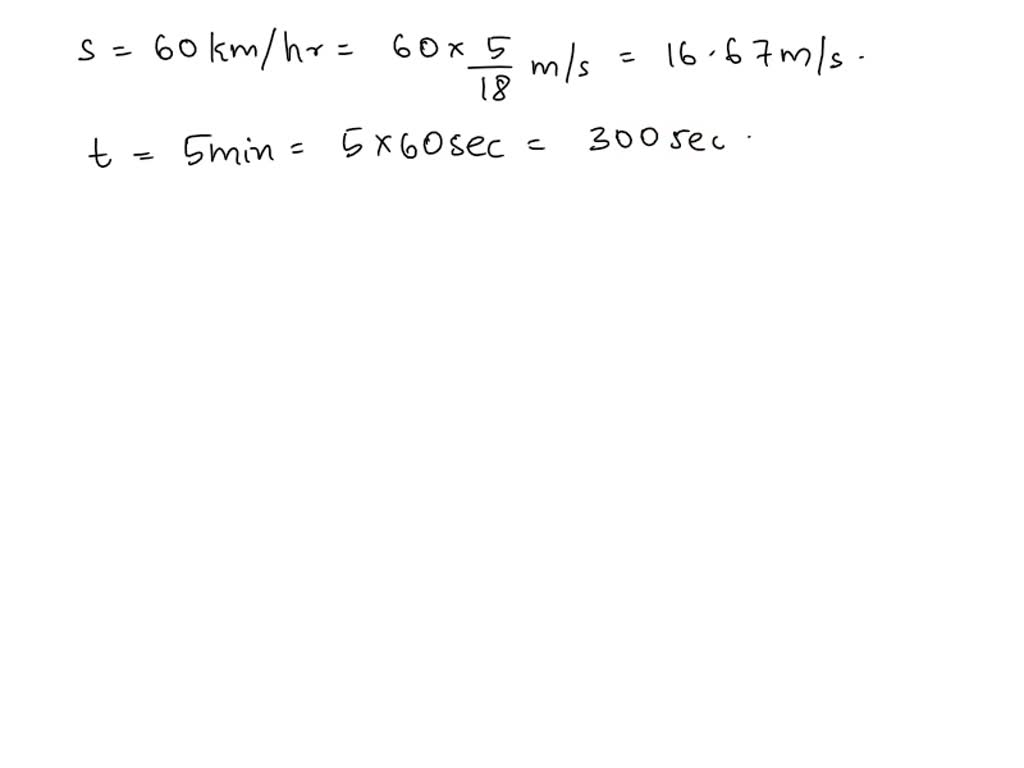 s = 60 km/hr = 60 × 5/18 m/s = 16.67 m/s.
t = 5 min = 5 × 60 sec = 300 sec.